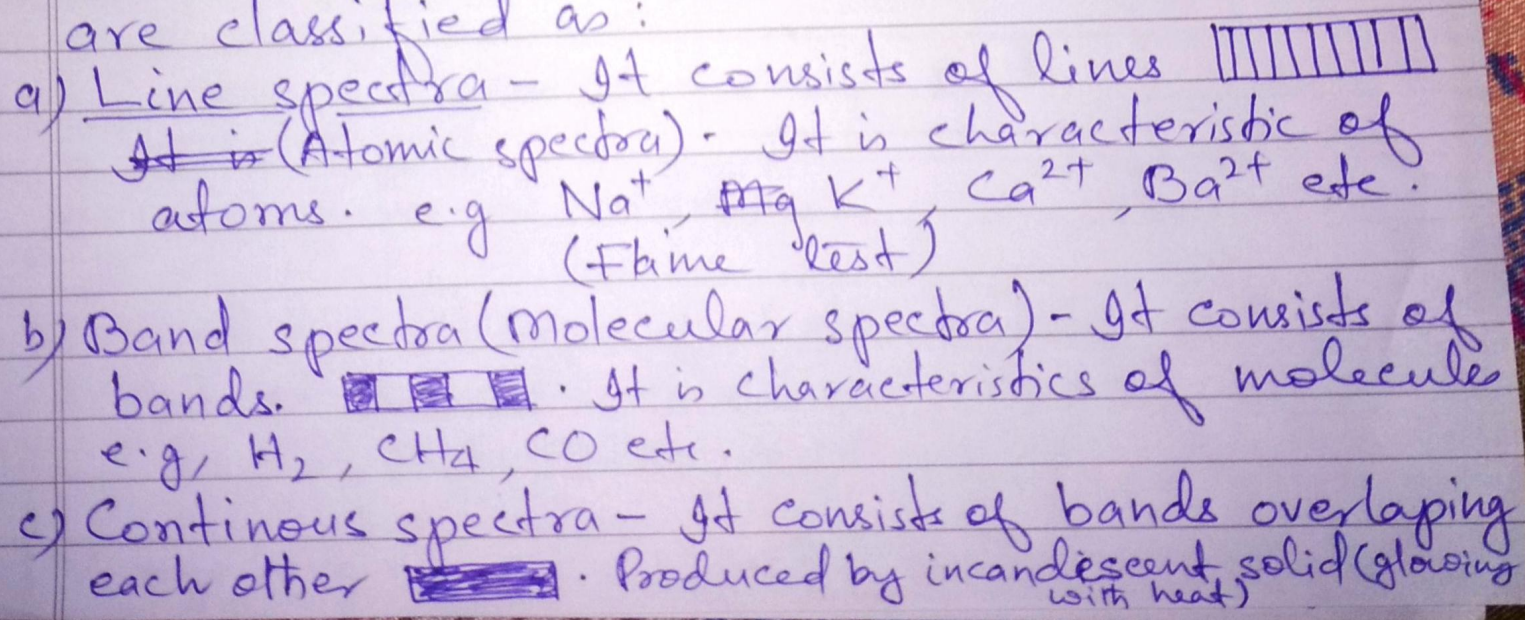 are classified as :
a) Line spectra - It consists of lines
It is (Atomic spectra). It is characteristic of
atoms. e.g Na⁺, Mg K⁺, Ca²⁺, Ba²⁺ etc.
(Flame test)
b) Band spectra (Molecular spectra) - It consists of
bands. . It is characteristics of molecules
e.g, H₂, CH4, CO etc.
c) Continous spectra - It consists of bands overlaping
each other . Produced by incandescent solid (glowing
with heat)